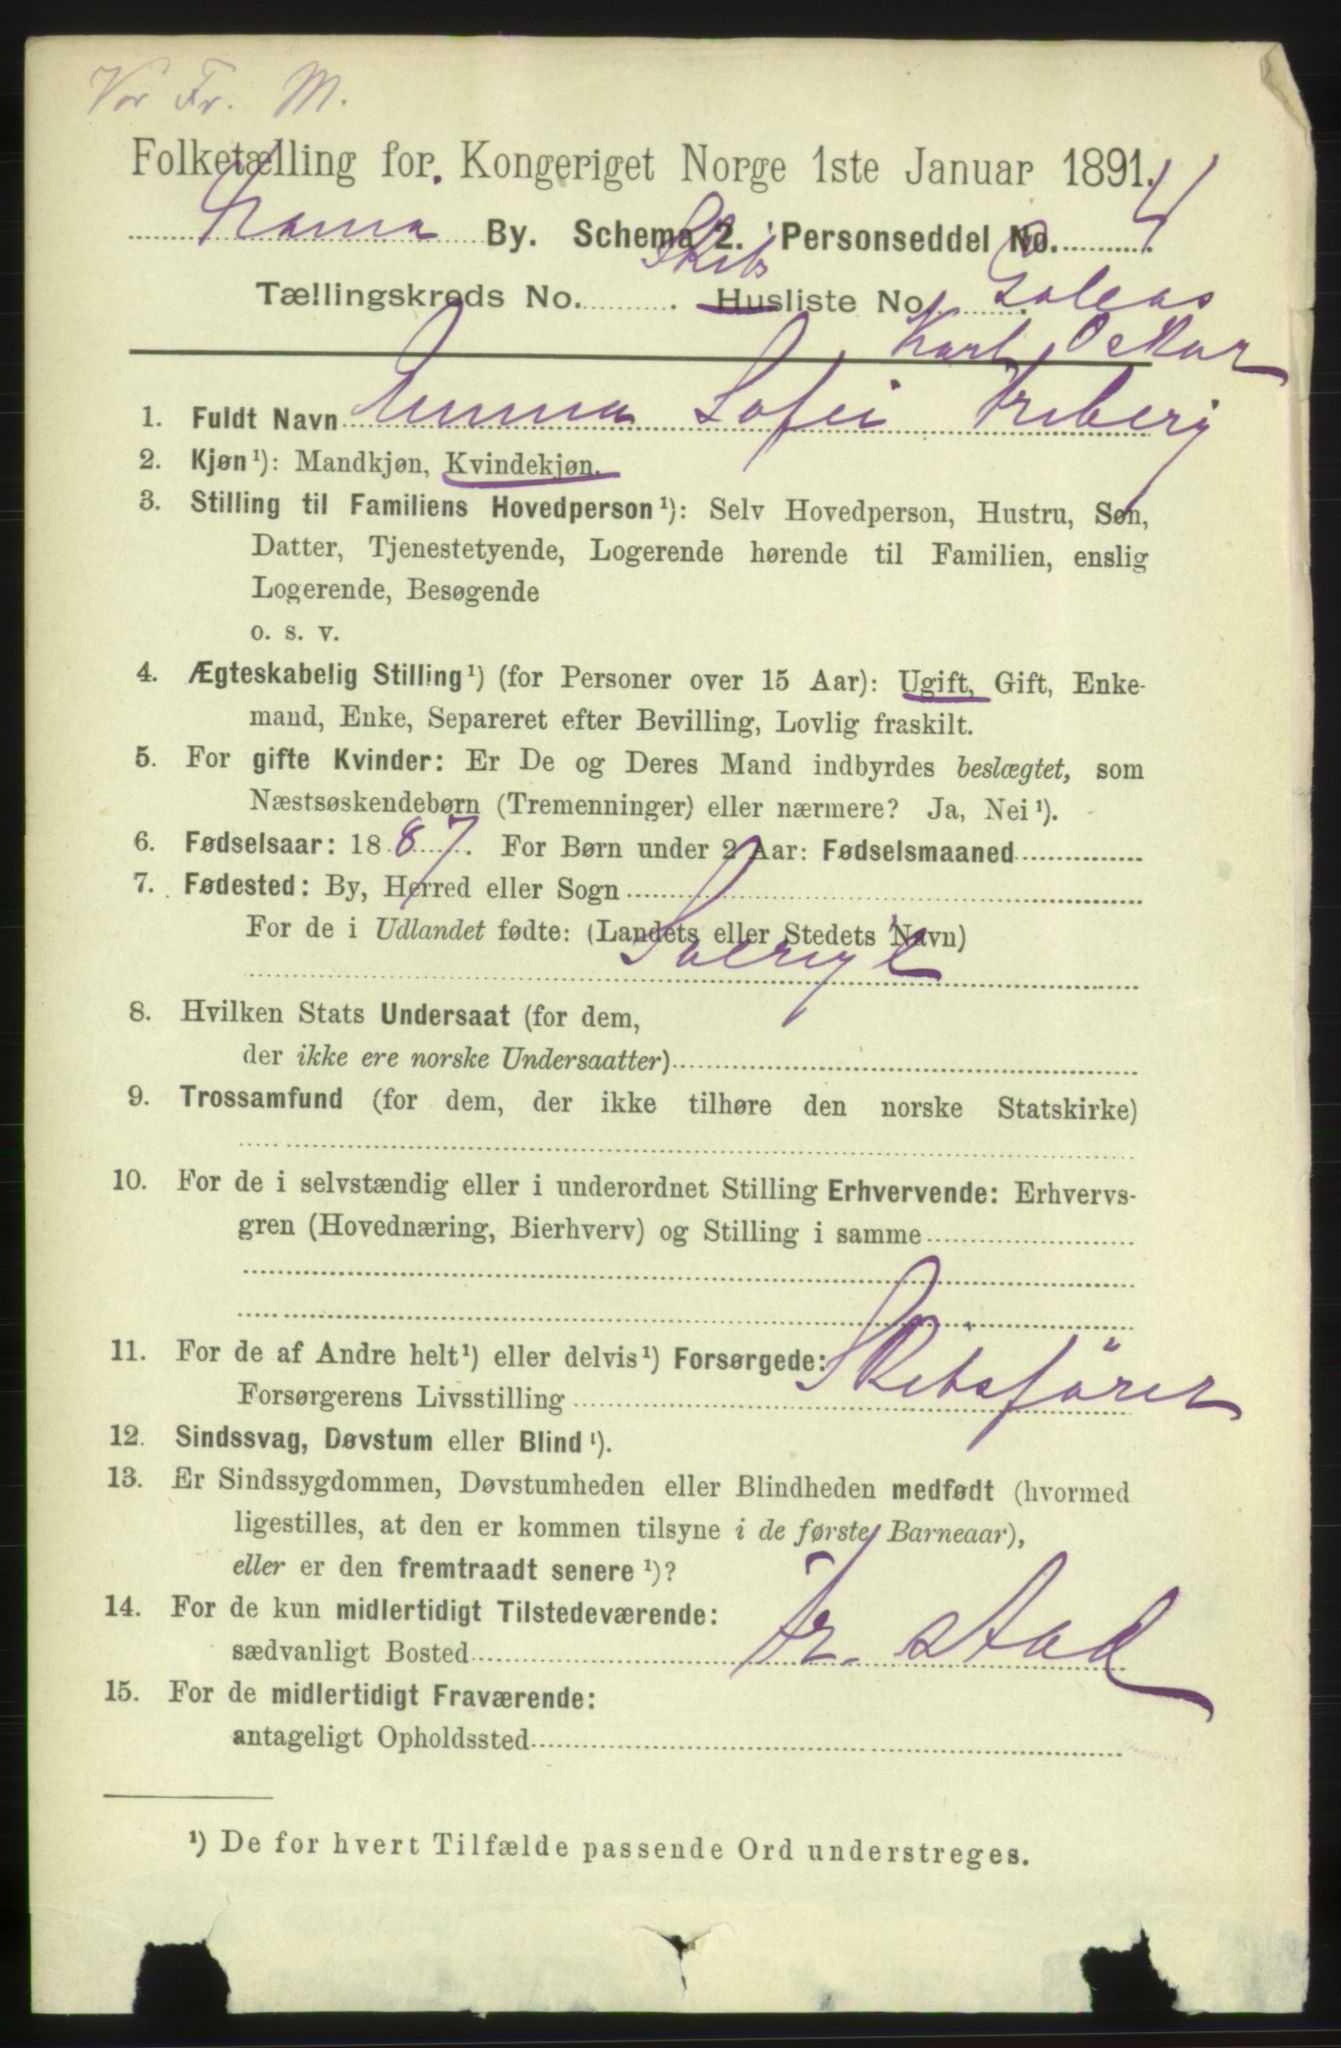 Vor Fr. M.
Folketælling for Kongeriget Norge 1ste Januar 1891.
By. Schema 2. Personseddel No. 4
Skibs
Tællingskreds No. Husliste No.
Karl Oskar
1. Fuldt Navn Emma Sofei Friberg
2. Kjøn¹): Mandkjøn, Kvindekjøn.
3. Stilling til Familiens Hovedperson¹): Selv Hovedperson, Hustru, Søn,
Datter, Tjenestetyende, Logerende hørende til Familien, enslig
Logerende, Besøgende
o. s. v.
4. Ægteskabelig Stilling¹) (for Personer over 15 Aar): Ugift, Gift, Enke-
mand, Enke, Separeret efter Bevilling, Lovlig fraskilt.
5. For gifte Kvinder: Er De og Deres Mand indbyrdes beslægtet, som
Næstsøskendebørn (Tremenninger) eller nærmere? Ja, Nei¹).
6. Fødselsaar: 1887. For Børn under 2 Aar: Fødselsmaaned
7. Fødested: By, Herred eller Sogn
For de i Udlandet fødte: (Landets eller Stedets Navn)
Sverige
8. Hvilken Stats Undersaat (for dem,
der ikke ere norske Undersaatter)
9. Trossamfund (for dem, der ikke tilhøre den norske Statskirke)
10. For de i selvstændig eller i underordnet Stilling Erhvervende: Erhvervs-
gren (Hovednæring, Bierhverv) og Stilling i samme
11. For de af Andre helt¹) eller delvis¹) Forsørgede:
Forsørgerens Livsstilling Skibsförer
12. Sindssvag, Døvstum eller Blind¹).
13. Er Sindssygdommen, Døvstumheden eller Blindheden medfødt (hvormed
ligestilles, at den er kommen tilsyne i de første Barneaar),
eller er den fremtraadt senere¹)?
14. For de kun midlertidigt Tilstedeværende:
sædvanligt Bosted Fr. stad
15. For de midlertidigt Fraværende:
antageligt Opholdssted
¹) De for hvert Tilfælde passende Ord understreges.